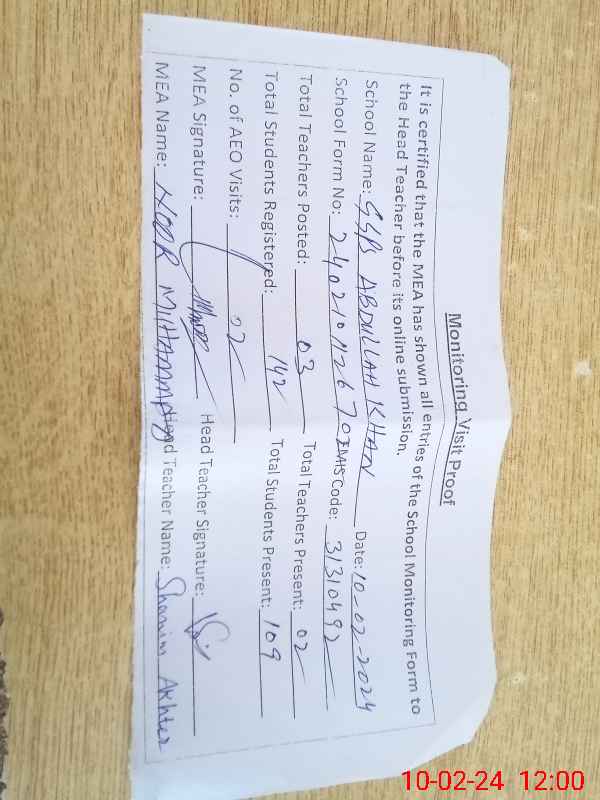 Monitoring Visit Proof
It is certified that the MEA has shown all entries of the School Monitoring Form to
the Head Teacher before its online submission.
School Name: GGPS ABDULLAH KHAN Date: 10-02-2024
School Form No: 2402101126 70 EMIS Code: 31310492
Total Teachers Posted: 03 Total Teachers Present: 02
Total Students Registered: 142 Total Students Present: 109
No. of AEO Visits: 02
MEA Signature: Head Teacher Signature:
MEA Name: NOOR MUHAMMAD Head Teacher Name: Shamim Akhter
10-02-24 12:00